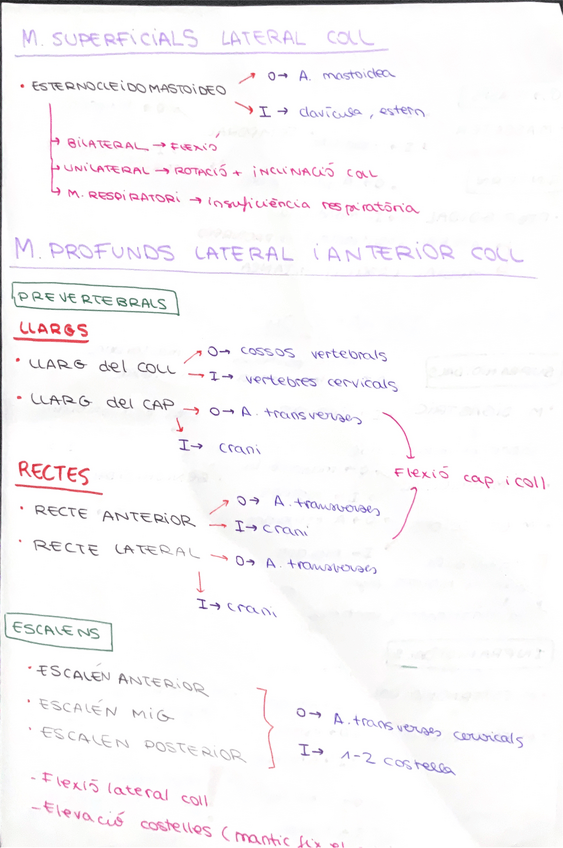 M. SUPERFICIALS LATERAL COLL
· ESTERNOCLEIDOMASTOIDEO
O→ A. mastoidea
I → clavícula, estern
→ BILATERAL → FLEXIÓ
→ UNILATERAL → ROTACIÓ + INCLINACIÓ COLL
→ M. RESPIRATORI → insuficiència respiratòria
M. PROFUNDS LATERAL i ANTERIOR COLL
PREVERTEBRALS
LLARGS
· LLARG del COLL
O→ cossos vertebrals
→ I→ vertebres cervicals
· LLARG del CAP → O→ A. transverses
I→ crani
Flexió cap i coll
RECTES
· RECTE ANTERIOR
O→ A. transverses
→ I→ crani
· RECTE LATERAL → O→ A. transverses
I→ crani
ESCALENS
· ESCALÉN ANTERIOR
· ESCALÉN MIG
· ESCALEN POSTERIOR
O→ A. transverses cervicals
I→ 1-2 costella
- Flexió lateral coll
- Elevació costelles (mantic fix el